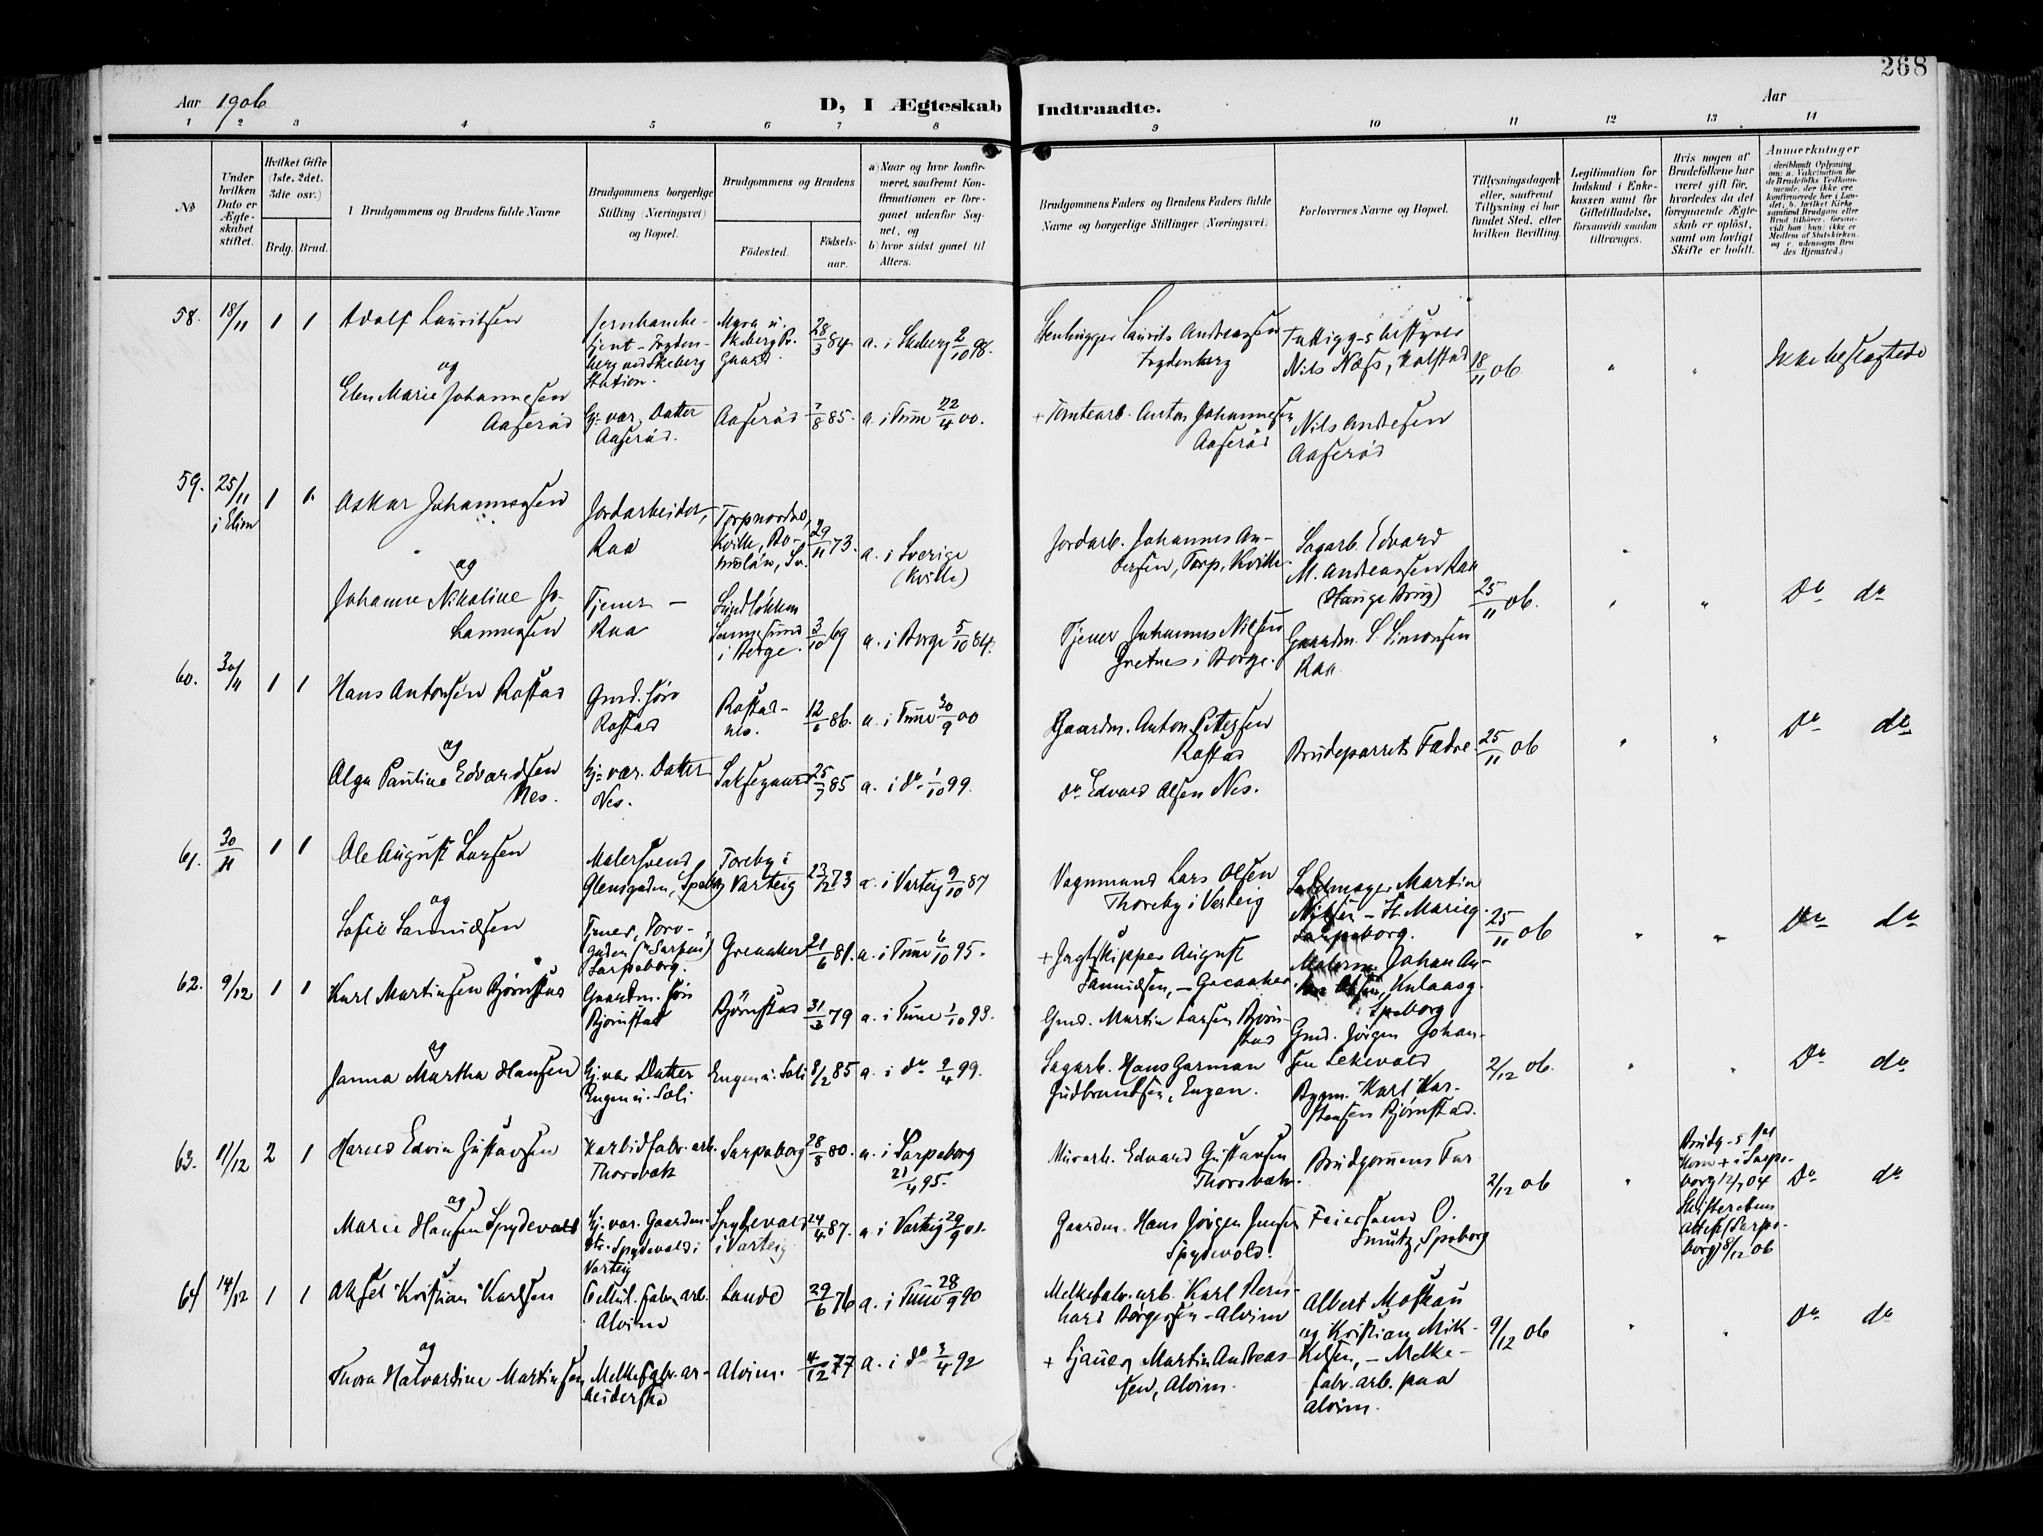 268
Aar 1906
D, I Ægteskab Indtraadte.
Aar
1 2 3 4 5 6 7 8 9 10 11 12 13 14
No
Under hvilken Dato er Ægteskabet stiftet.
Hvilket Gifte (1ste, 2det, 3die osv.)
Brdg. Brud.
Brudgommens og Brudens fulde Navne
Brudgommens borgerlige Stilling (Næringsvei) og Bopæl.
Brudgommens og Brudens
Fødested. Fødselsaar.
a) Naar og hvor konfirmeret, saafremt Konfirmationen er foregaaet udenfor Sognet, og
b) hvor sidst gaaet til Alters.
Brudgommens Faders og Brudens Faders fulde Navne og borgerlige Stillinger (Næringsvei)
Forlovernes Navne og Bopæl.
Tillysningsdagene eller, saafremt Tillysning ei har fundet Sted, efter hvilken Bevilling.
Legitimation for Indskud i Enkekassen samt for Giftetilladelse, forsaavidt saadan tiltrænges.
Hvis nogen af Brudefolkene har været gift før, hvorledes da det foregaaende Ægteskab er opløst, samt om lovligt Skifte er holdt.
Anmerkninger
58. 18/11 1 1 Adolf Lauritsen
og
Elen Marie Johannesen
Aaserød
Jernbanebetjent - Frydenberg ved Skeberg Station.
Gj. vær. Datter
Aaserød.
28/3 84 a. i Skeberg 2/10 98.
Aaserød 7/8 85. a. i Tune 22/4 00.
Stenhugger Laurits Andreassen
Frydenberg
+ Tomtearb. Anton Johannesen
Aaserød
Fattiggsbestyrer
Nils Næss, Kalstad
Nils Andesen
Aaserød
18/11 06
Ikke beslegtede
59. 25/11 1 1 Oskar Johannessen
i Elim
og
Johanne Nikoline Johannessen
Jordarbeider,
Raa
Tjener -
Raa
29/11 73. a. i Sverige
(Kville)
i Borge 3/10 69 a. i Borge 5/10 84.
Jordarb. Johannes Andersen, Torp, Kville
Tjener Johannes Nilsen
Gretnes i Borge.
Sagarb. Edvard
M. Andreassen Raa
(Hauge Brug)
Gaardm. S. Simonsen
Raa.
25/11 06. Do do
60. 30/11 1 1 Hans Antonsen Rostad
og
Olga Pauline Edvardsen
Nes.
Gmd. søn
Rostad
Gj. vær. Datter
Nes.
Rostadnes. 12/6 86. a. i Tune 30/9 00
25/7 85 a. i do 1/10 99.
Gaardm. Anton Petersen
Rostad
Do Edvard Olsen Nes.
Brudeparrets Fædre 25/11 06 Do do
61. 30/11 1 1 Ole August Larsen
og
Sofie Samuelsen
Malersvend
Glensgaden, Spsborg
Tjener, Torvgaden
Sarpsborg.
Toreby i
Varteig 23/12 73 a. i Varteig 9/10 87
Greaaker 21/6 81. a. i Tune 6/10 95.
Vognmand Lars Olsen
Thoreby i Varteig
+ Jagtskipper August
Samuelsen, - Greaaker
Sadelmager Martin
Nilsen - St. Marieg.
Sarpsborg.
25/11 06 Do do
62. 9/12 1 1 Karl Martinsen Bjørnstad
og
Janna Martha Hansen
Gaardm. søn
Bjørnstad
Gj. vær Datter
Engen u. Soli
Bjørnstad 31/3 79 a. i Tune 1/10 93.
Engen u. Soli 8/2 85 a. i do 2/4 99.
Gmd. Martin Larsen Bjørnstad
Sagarb. Hans Garman
Gudbrandsen, Engen.
Gmd. Jørgen Johansen Lekevold
Bygm. Karl Karstensen Bjørnstad.
2/12 06. Do do
63. 11/12 2 1 Marius Edvin Gustavsen
og
Marie Hansen Spydevold
Karbidfabr. arb.
Thorsbæk
Gj. vær. Gaardm.
dtr. Spydevold i
Varteig
Sarpsborg 28/8 80. a. i Sarpsborg
21/4 95.
Spydevold
i Varteig 24/4 87. a. i Varteig 29/9 01.
Murarb. Edvard Gustavsen
Thorsbæk.
Gaardm. Hans Jørgen Jensen
Spydevold.
Brudgomens Far
Feiersvend O.
Smutz, Spsborg
2/12 06
Brudg.s 1ste
Kone + i Sarpsborg 12/7 04
Skifterettens
attest Sarpsborg 8/12 06
Do do
64 14/12 1 1 Aksel Kristian Karlsen
og
Thora Halvardine Martinsen
Cellul. fabr. arb.
Alvim
Melkefabr. arbeiderske
Lande 29/6 76 a. i Tune 28/9 90
Alvim. 4/12 77 a. i do 3/4 92
Melkefabr. arb. Karl Bernhard Børgesen - Alvim
+ Sjauer Martin Andreassen, Alvim.
Albert Moskau
og Kristian Mikkelsen, - Melkefabr. arb. paa
Alvim.
9/12 06 Do do